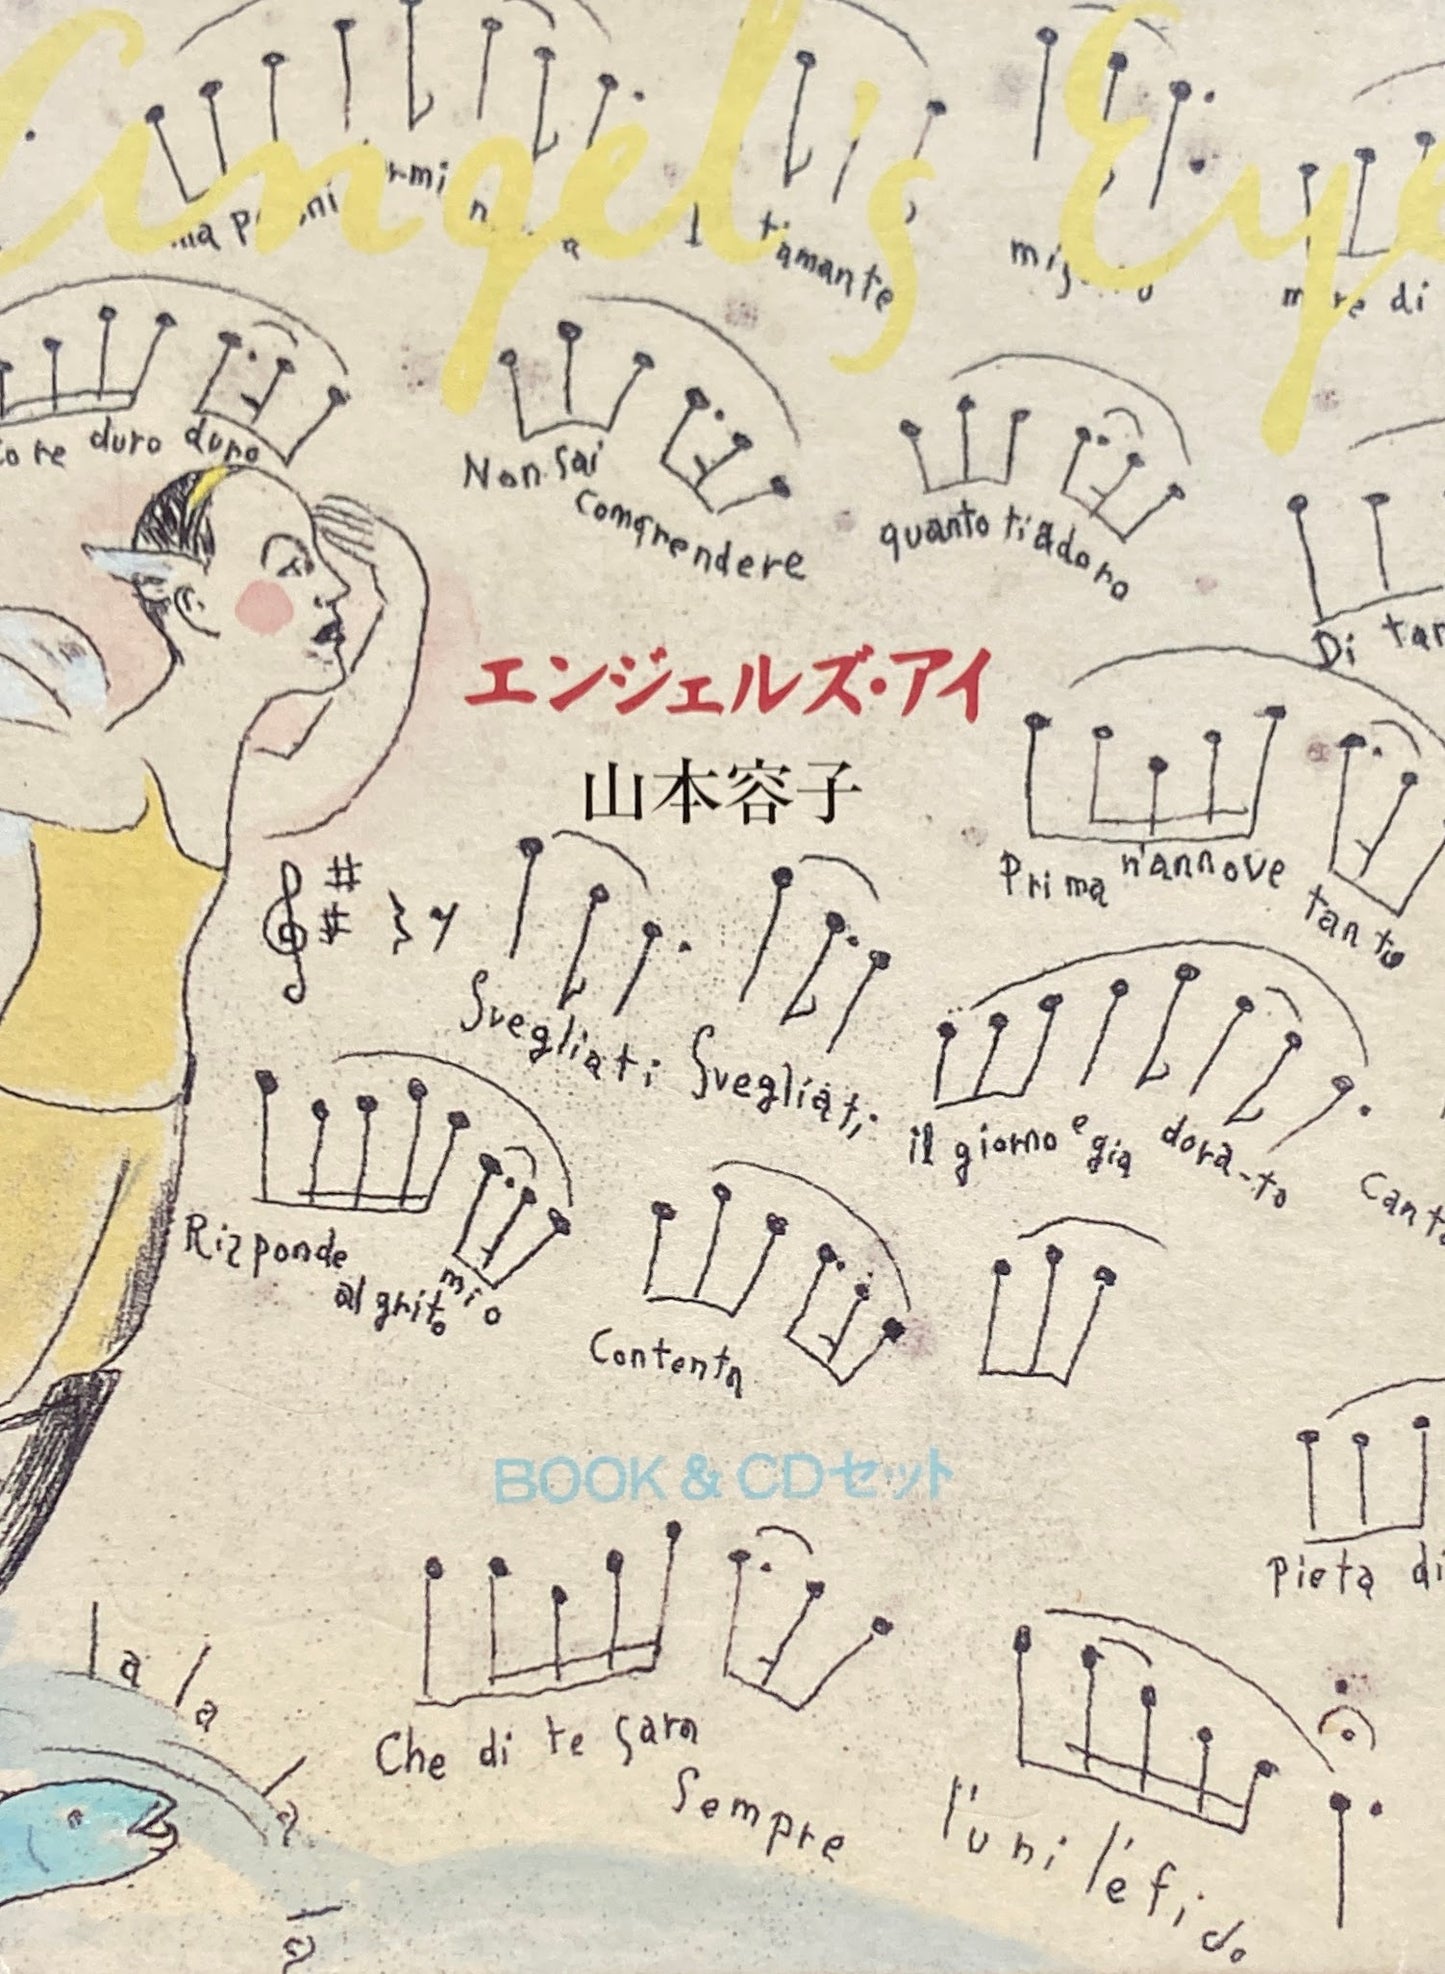 Angel's Eye
tiamante
di
core duro duro
Non sai
comprendere
quanto ti adoro
Di tan
エンジェルズ・アイ
山本容子
Prima n'annove
tanto
Svegliati Svegliati
il giorno e gia dora-to
Canta
Risponde
al grito mio
Contenta
BOOK & CDセット
Pieta di
la la
la
la
Che di te sara
sempre
l'uni l'e fido